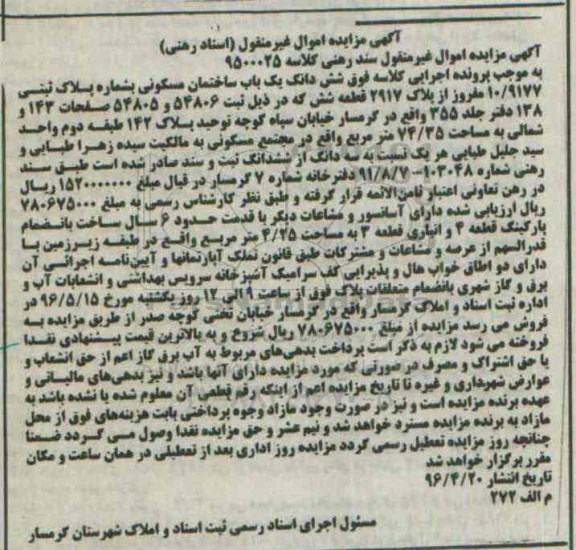 آگهی مزایده اموال غیرمنقول (اسناد رهنی)
آگهی مزایده اموال غیرمنقول سند رهنی کلاسه ۹۵۰۰۰۲۵
به موجب پرونده اجرایی کلاسه فوق شش دانگ یک باب ساختمان مسکونی بشماره پلاک ثبتی
۱۰/۹۱۷۷ مفروز از پلاک ۲۹۱۷ قطعه شش که در ذیل ثبت ۵۴۸۰۶ و ۵۴۸۰۵ صفحات ۱۴۳ و
۱۳۸ دفتر جلد ۳۵۵ واقع در گرمسار خیابان سپاه کوچه توحید پلاک ۱۴۲ طبقه دوم واحد
شمالی به مساحت ۷۴/۳۵ متر مربع واقع در مجتمع مسکونی به مالکیت سیده زهرا طبایی و
سید جلیل طبایی هر یک نسبت به سه دانگ از ششدانگ ثبت و سند صادر شده است طبق سند
رهنی شماره ۱۰۳۰۴۸-۹۱/۸/۷ دفترخانه شماره ۷ گرمسار در قبال مبلغ ۱۵۲۰۰۰۰۰۰ ریال
در رهن تعاونی اعتبار ثامن‌الائمه قرار گرفته و طبق نظر کارشناس رسمی به مبلغ ۷۸۰۶۷۵۰۰۰
ریال ارزیابی شده دارای آسانسور و مشاعات دیگر با قدمت حدود ۶ سال ساخت بانضمام
پارکینگ قطعه ۴ و انباری قطعه ۳ به مساحت ۴/۲۵ متر مربع واقع در طبقه زیرزمین با
قدرالسهم از عرصه و مشاعات و مشترکات طبق قانون تملک آپارتمانها و آیین‌نامه اجرائی آن
دارای دو اطاق خواب هال و پذیرایی کف سرامیک آشپزخانه سرویس بهداشتی و انشعابات آب و
برق و گاز شهری بانضمام متعلقات پلاک فوق از ساعت ۹ الی ۱۲ روز یکشنبه مورخ ۹۶/۵/۱۵ در
اداره ثبت اسناد و املاک گرمسار واقع در گرمسار خیابان تختی کوچه صدر از طریق مزایده به
فروش می رسد مزایده از مبلغ ۷۸۰۶۷۵۰۰۰ ریال شروع و به بالاترین قیمت پیشنهادی نقدا
فروخته می شود لازم به ذکر است پرداخت بدهی‌های مربوط به آب برق گاز اعم از حق انشعاب و
یا حق اشتراک و مصرف در صورتی که مورد مزایده دارای آنها باشد و نیز بدهی‌های مالیاتی و
عوارض شهرداری و غیره تا تاریخ مزایده اعم از اینکه رقم قطعی آن معلوم شده یا نشده باشد به
عهده برنده مزایده است و نیز در صورت وجود مازاد وجوه پرداختی بابت هزینه‌های فوق از محل
مازاد به برنده مزایده مسترد خواهد شد و نیم عشر و حق مزایده نقدا وصول می گردد ضمنا
چنانچه روز مزایده تعطیل رسمی گردد مزایده روز اداری بعد از تعطیلی در همان ساعت و مکان
مقرر برگزار خواهد شد
تاریخ انتشار ۹۶/۴/۲۰
م الف ۲۷۲
مسئول اجرای اسناد رسمی ثبت اسناد و املاک شهرستان گرمسار